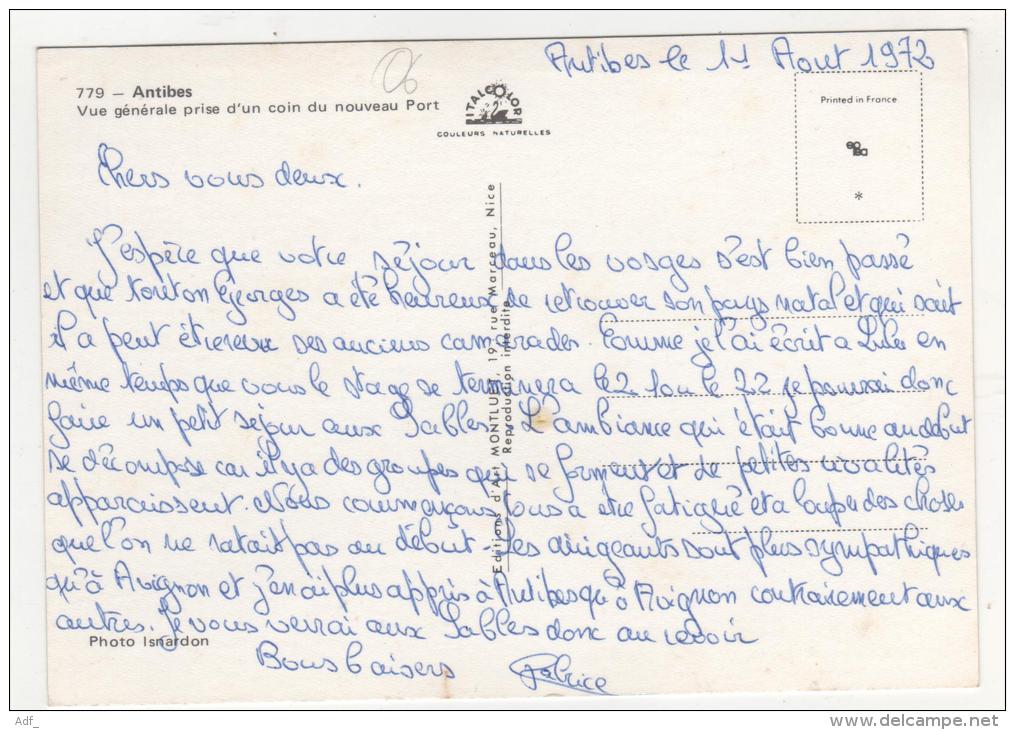 Antibes le 11 Aout 1972
779 — Antibes
Vue générale prise d'un coin du nouveau Port
ITALCOLOR
COULEURS NATURELLES
Printed in France
*
Chers vous deux.
J'espère que votre séjour dans les vosges s'est bien passé
et que tonton Georges a été heureux de retrouver son pays natal et qui sait
il a peut être revu ses anciens camarades. Comme je l'ai écrit a en
même temps que vous le stage se terminera le 21 ou le 22 je pourrai donc
faire un petit séjour aux Sables. L'ambiance qui était bonne au début
se décompose car il y a des groupes qui se forment et de petites rivalités
apparaissent. Nous commençons tous a être fatigué et a louper des choses
que l'on ne ratait pas au début. Les dirigeants sont plus sympathiques
qu'à Avignon et j'en ai plus appris à Antibes qu'à Avignon contrairement aux
autres. Je vous verrai aux Sables donc au revoir
Bons baisers Fabrice
Photo Isnardon
Editions d'Art MONTLUET, 19, rue Marceau, Nice
Reproduction interdite
Adf_
delcampe.net